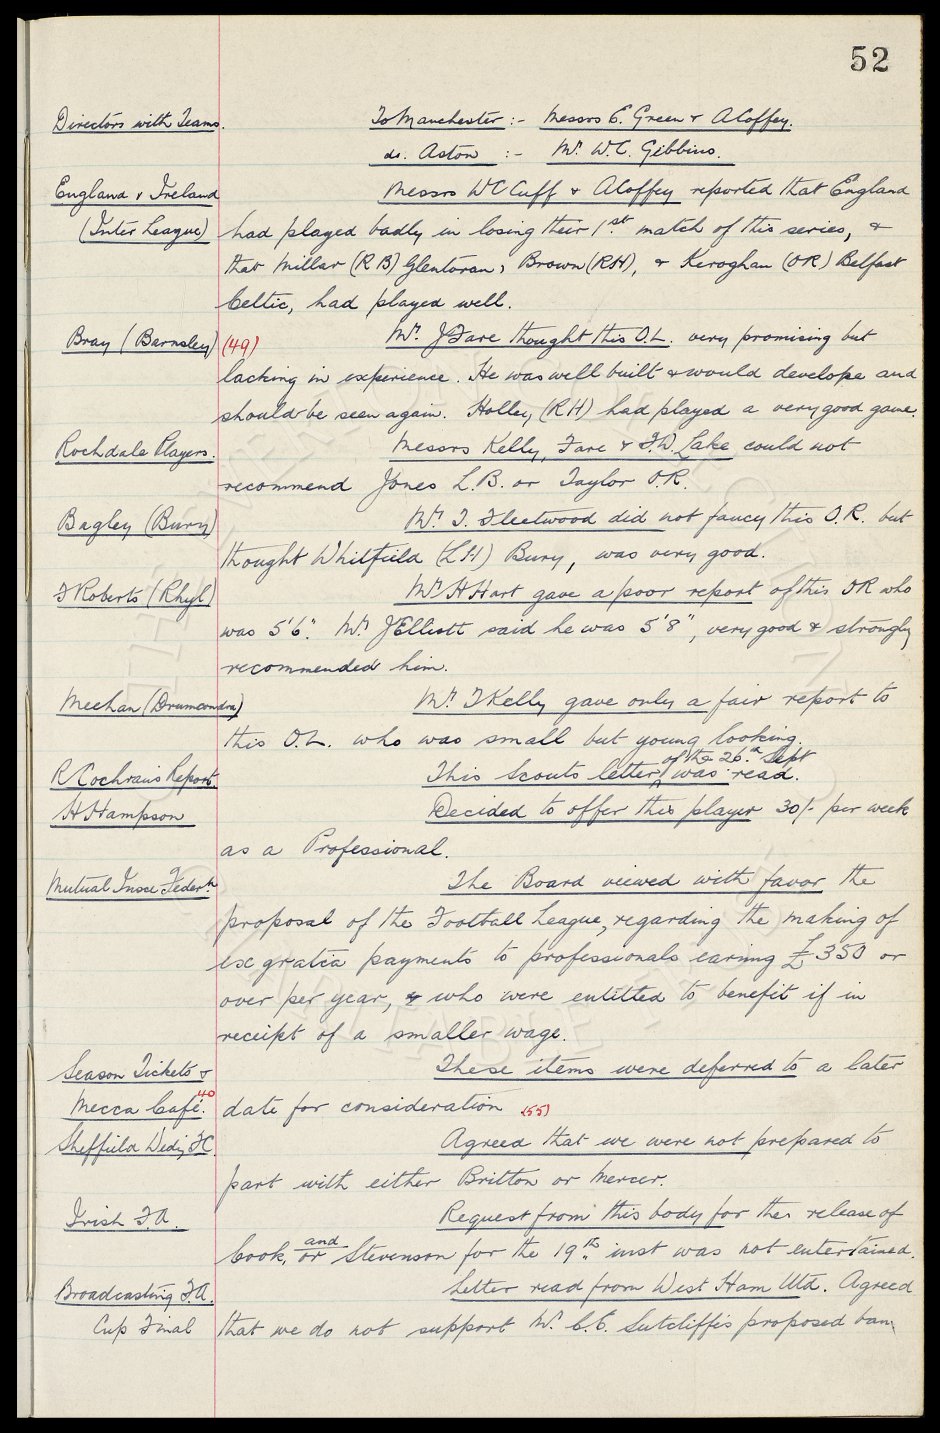 52
Directors with Teams. To Manchester :- Messrs E. Green & A Coffey.
do. Aston :- Mr. W.C. Gibbins.
England v Ireland Messrs W C Cuff & A Coffey reported that England
(Inter League) had played badly in losing their 1st. match of this series, &
that Millar (R B) Glentoran, Brown (RH), & Keroghan (OR) Belfast
Celtic, had played well.
Bray (Barnsley) (49) Mr. J Fare thought this O.L. very promising but
lacking in experience. He was well built & would develope and
should be seen again. Holley, (RH) had played a very good game.
Rochdale Players. Messrs Kelly, Fare & F.W. Lake could not
recommend Jones L.B. or Taylor O.R.
Bagley (Bury) Mr. T. Fleetwood did not fancy this O.R. but
thought Whitfield (LH) Bury, was very good.
F Roberts (Rhyl) Mr. H Hart gave a poor report of this IR who
was 5'6". Mr. J Elliott said he was 5'8", very good & strongly
recommended him.
Meehan (Drumcondra) Mr. T Kelly gave only a fair report to
this O.L. who was small but young looking.
of the 26.th Sept
R Cochran's Report. This Scouts letter was read.
H Hampson Decided to offer this player 30/- per week
as a Professional.
Mutual Insce Federn. The Board viewed with favor the
proposal of the Football League, regarding the making of
ex gratia payments to professionals earning £350 or
over per year, & who were entitled to benefit if in
receipt of a smaller wage.
Season Tickets & These items were deferred to a later
Mecca Café. 40 date for consideration (55)
Sheffield Wedy FC Agreed that we were not prepared to
part with either Britton or Mercer.
Irish F.A. Request from this body for the release of
Cook, or and Stevenson for the 19th. inst was not entertained.
Broadcasting F.A. Letter read from West Ham Utd. Agreed
Cup Final that we do not support Mr. C.E. Sutcliffe's proposed ban